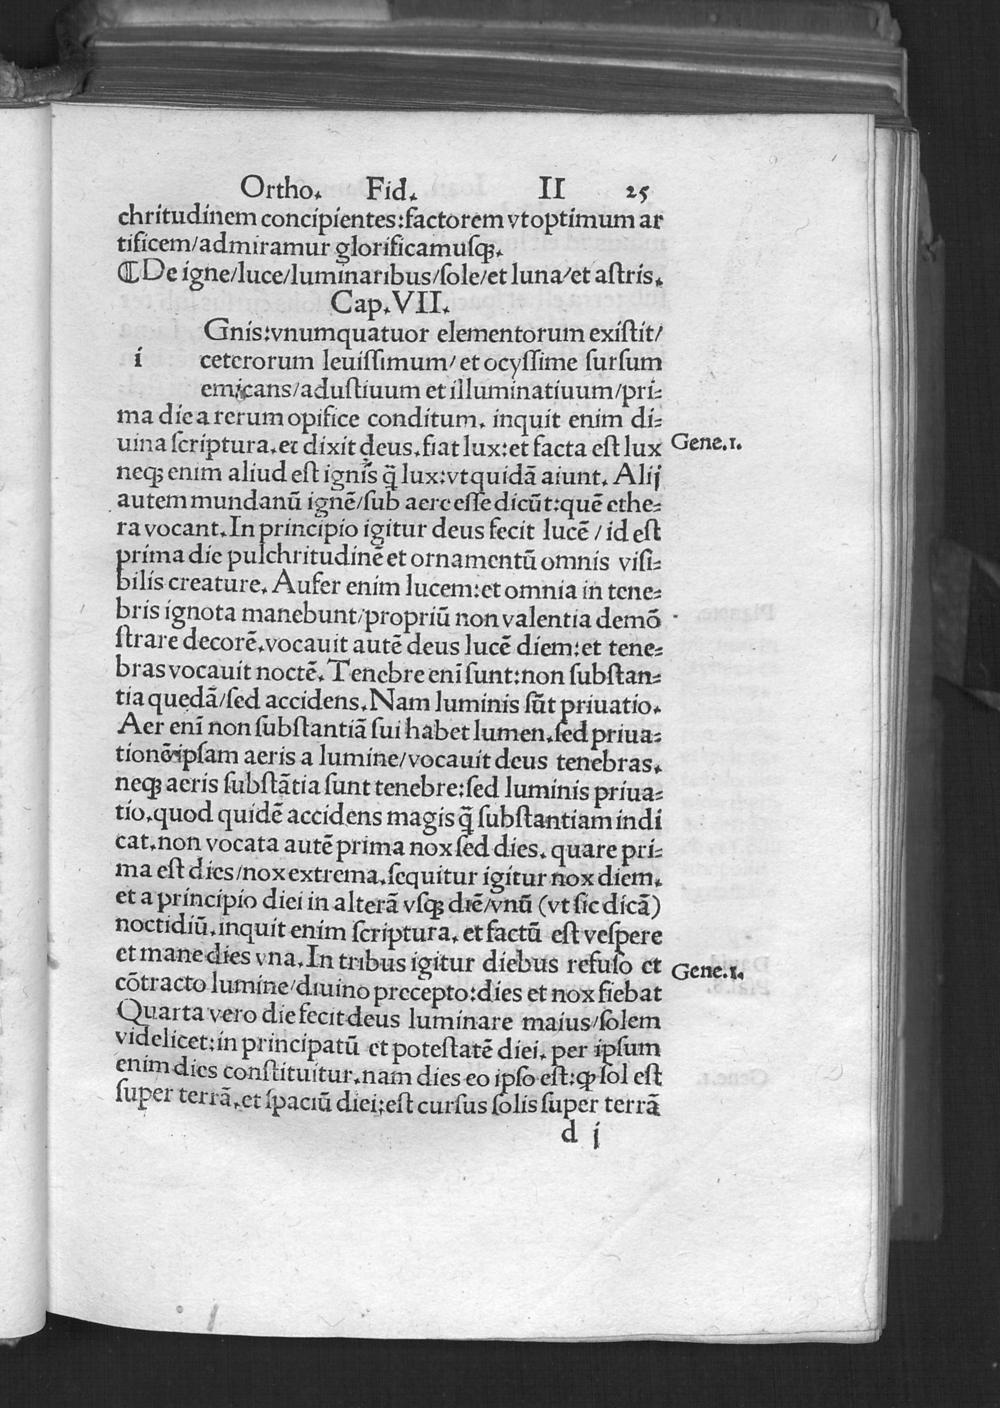 Ortho. Fid. II 25
chritudinem concipientes:factorem vt optimum ar
tificem/admiramur glorificamusqꝫ.
⁋De igne/luce/luminaribus/ſole/et luna/et aſtris.
Cap.VII.
Gnis:vnum quatuor elementorum exiſtit/
i ceterorum leuiſſimum/et ocyſſime ſurſum
emicans/aduſtiuum et illuminatiuum/pri⸗
ma die a rerum opifice conditum. inquit enim di⸗
uina ſcriptura.et dixit deus.fiat lux:et facta eſt lux Gene.1.
neqꝫ enim aliud eſt ignis q̃ lux:vt quidã aiunt. Alij
autem mundanũ ignẽ/ſub aere eſſe dicũt:quẽ ethe⸗
ra vocant.In principio igitur deus fecit lucẽ/id eſt
prima die pulchritudinẽ et ornamentũ omnis viſi⸗
bilis creature. Aufer enim lucem:et omnia in tene⸗
bris ignota manebunt/propriũ non valentia demõ
ſtrare decorẽ.vocauit autẽ deus lucẽ diem:et tene⸗
bras vocauit noctẽ.Tenebre enĩ ſunt:non ſubſtan⸗
tia quedã/ſed accidens.Nam luminis ſũt priuatio.
Aer enĩ non ſubſtantiã ſui habet lumen.ſed priua⸗
tionẽ ipſam aeris a lumine/vocauit deus tenebras.
neqꝫ aeris ſubſtãtia ſunt tenebre:ſed luminis priua⸗
tio.quod quidẽ accidens magis q̃ ſubſtantiam indi
cat.non vocata autẽ prima nox ſed dies. quare pri⸗
ma eſt dies/nox extrema.ſequitur igitur nox diem.
et a principio diei in alterã vſqꝫ diẽ/vnũ (vt ſic dicã)
noctidiũ.inquit enim ſcriptura. et factũ eſt veſpere
et mane dies vna.In tribus igitur diebus refuſo et Gene.1.
cõtracto lumine/diuino precepto:dies et nox fiebat
Quarta vero die fecit deus luminare maius/ſolem
videlicet:in principatũ et poteſtatẽ diei. per ipſum
enim dies conſtituitur.nam dies eo ipſo eſt:ꝙ ſol eſt
ſuper terrã.et ſpaciũ diei:eſt curſus ſolis ſuper terrã
d j